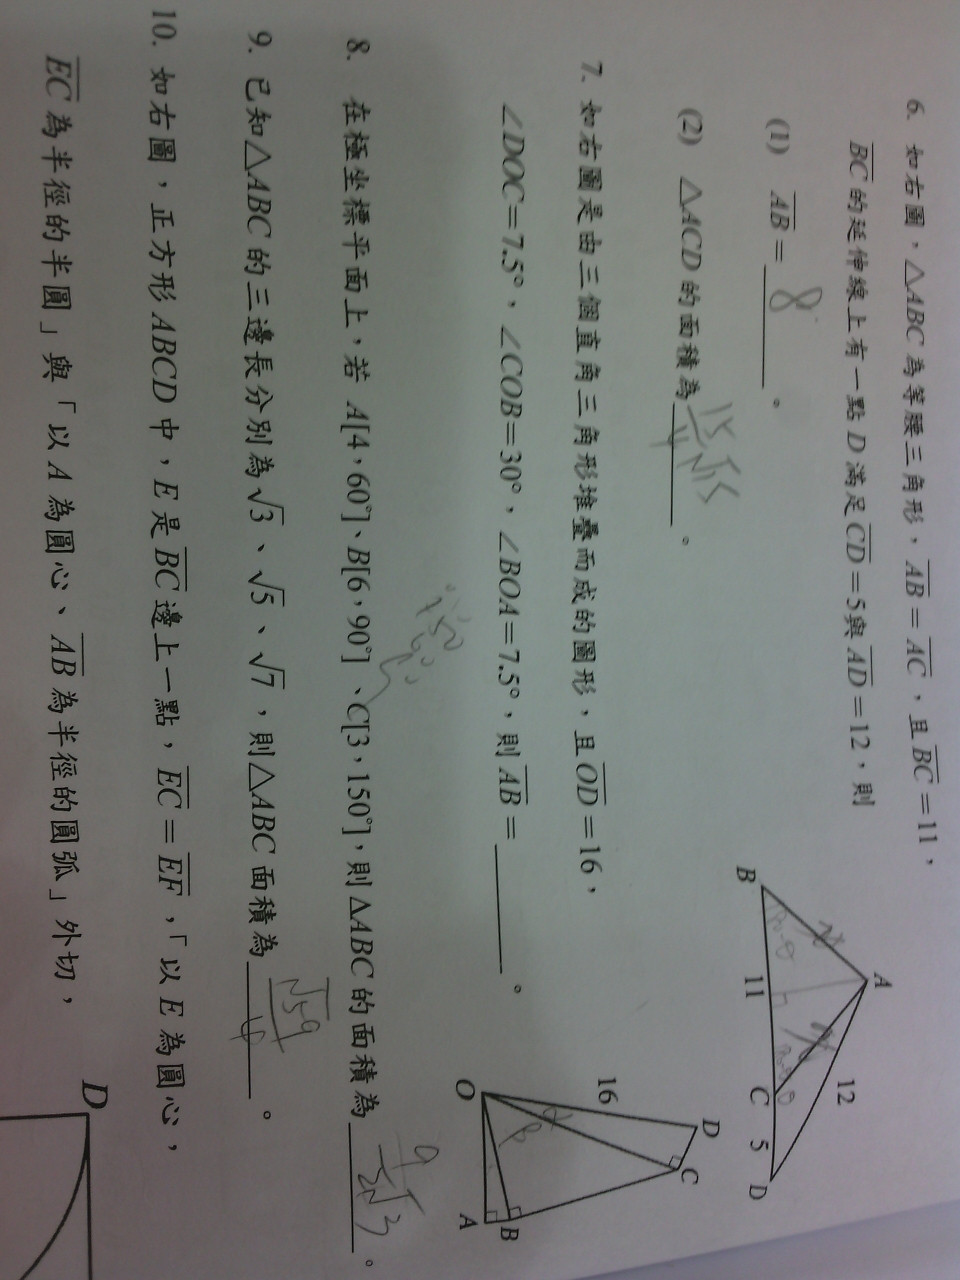 6. 如右圖，△ABC為等腰三角形，AB=AC，且BC=11，
BC的延伸線上有一點D滿足CD=5與AD=12，則
(1) AB= 8 。
(2) △ACD的面積為 15/4 √15 。
A
B
11
C
5
D
12
7. 如右圖是由三個直角三角形堆疊而成的圖形，且OD=16，
∠DOC=7.5°，∠COB=30°，∠BOA=7.5°，則AB=______。
16
D
C
O
B
A
8. 在極坐標平面上，若A[4，60°]、B[6，90°]、C[3，150°]，則△ABC的面積為 9/2 √3 。
9. 已知△ABC的三邊長分別為√3、√5、√7，則△ABC面積為 √59/4 。
10. 如右圖，正方形ABCD中，E是BC邊上一點，EC=EF，「以E為圓心，
EC為半徑的半圓」與「以A為圓心、AB為半徑的圓弧」外切，
D